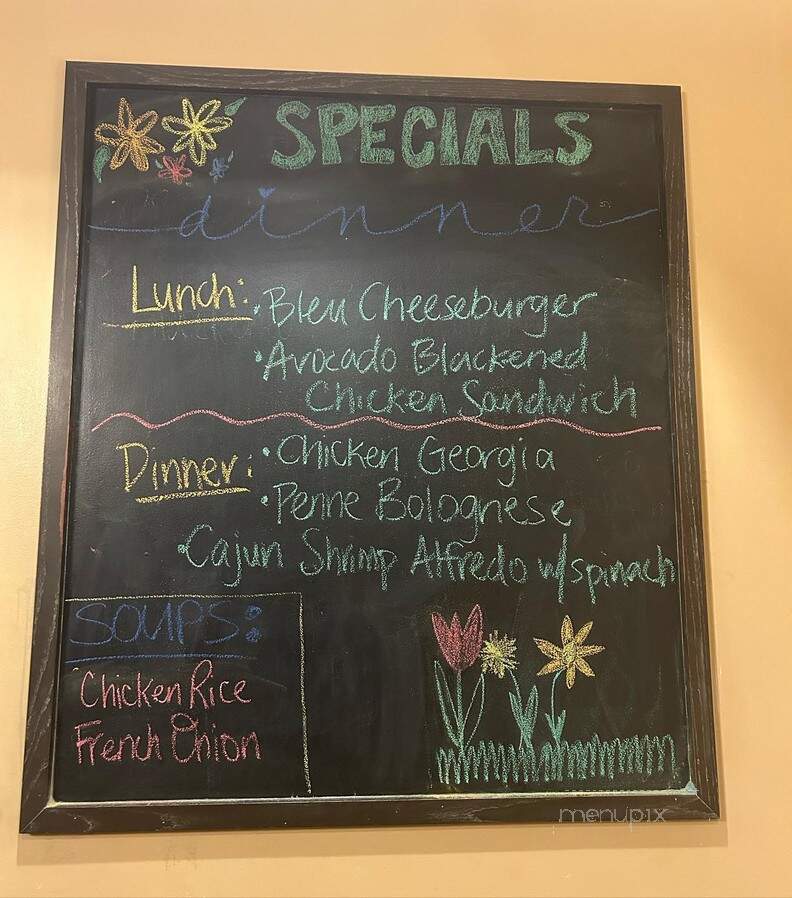 SPECIALS
dinner
Lunch: • Bleu Cheeseburger
• Avocado Blackened
Chicken Sandwich
Dinner: • Chicken Georgia
• Penne Bolognese
• Cajun Shrimp Alfredo w/spinach
SOUPS:
Chicken Rice
French Onion
menupix